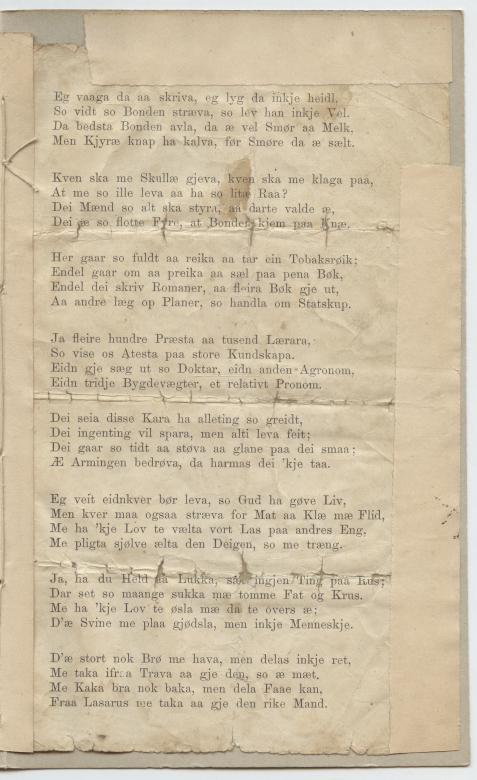 Eg vaaga da aa skriva, eg lyg da inkje heidl,
So vidt so Bonden stræva, so lev han inkje Vel.
Da bedsta Bonden avla, da æ vel Smør aa Melk,
Men Kjyræ knap ha kalva, før Smøre da æ sælt.
Kven ska me Skullæ gjeva, kven ska me klaga paa,
At me so ille leva aa ha so litæ Raa?
Dei Mænd so alt ska styra, aa darte valde æ,
Dei æ so flotte Fyre, at Bonden kjem paa Knæ.
Her gaar so fuldt aa reika aa tar ein Tobaksrøik;
Endel gaar om aa preika aa sæl paa pena Bøk,
Endel dei skriv Romaner, aa fleira Bøk gje ut,
Aa andre læg op Planer, so handla om Statskup.
Ja fleire hundre Præsta aa tusend Lærara,
So vise os Atesta paa store Kundskapa.
Eidn gje sæg ut so Doktar, eidn anden Agronom,
Eidn tridje Bygdevægter, et relativt Pronom.
Dei seia disse Kara ha alleting so greidt,
Dei ingenting vil spara, men alti leva feit;
Dei gaar so tidt aa støva aa glane paa dei smaa;
Æ Armingen bedrøva, da harmas dei 'kje taa.
Eg veit eidnkver bør leva, so Gud ha gøve Liv,
Men kver maa ogsaa stræva for Mat aa Klæ mæ Flid,
Me ha 'kje Lov te vælta vort Las paa andres Eng,
Me pligta sjølve ælta den Deigen, so me træng.
Ja, ha du Held aa Lukka, sæt ingjen Ting paa Rus;
Dar set so maange sukka mæ tomme Fat og Krus.
Me ha 'kje Lov te øsla mæ da te overs æ;
D'æ Svine me plaa gjødsla, men inkje Menneskje.
D'æ stort nok Brø me hava, men delas inkje ret,
Me taka ifraa Trava aa gje den, so æ mæt,
Me Kaka bra nok baka, men dela Faae kan,
Fraa Lasarus me taka aa gje den rike Mand.